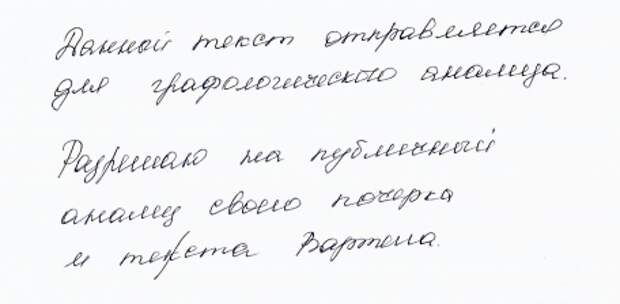 Данный текст отправляется
для графологического анализа.
Разрешаю на публичный
анализ своего почерка
и текста